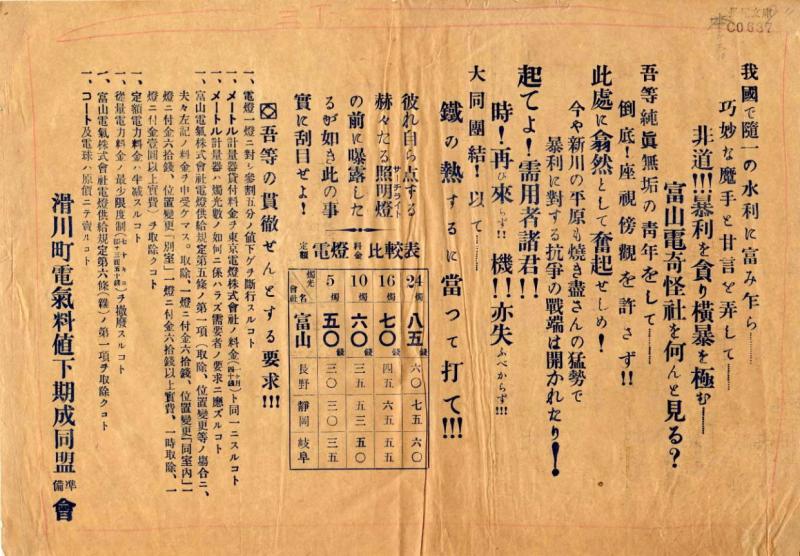 我國で隨一の水利に富み乍ら……
巧妙な魔手と甘言を弄して……
非道!!!暴利を貪り横暴を極む……
富山電奇怪社を何んと見る?
吾等純眞無垢の靑年をして……
倒底!座視傍觀を許さず!!
此處に翕然として奮起せしめ!
今や新川の平原も燒き盡さんの猛勢で
暴利に對する抗爭の戰端は開かれたり!
起てよ!需用者諸君!!
時!再び來らず!!機!!亦失ふべからず!!!
大同團結!以て……
鐵の熱するに當つて打て!!!
彼れ自ら点する
赫々たる照明燈
サーチライト
の前に曝露した
るが如き此の事
實に刮目せよ!
定額電燈料金比較表
燭光 會社名 24燭 16燭 10燭 5燭
富山 八五錢 七〇錢 六〇錢 五〇錢
長野 六〇 四五 三五 三〇
靜岡 七五 六五 五五 三〇
岐阜 六〇 五五 五〇 三五
吾等の貫徹ぜんとする要求!!!
一、電燈一燈ニ對シ參割五分ノ値下ゲチ斷行スルコト
一、メートル計量器貸付料金ヲ東京電燈株式會社ノ料金ト同一ニスルコト
一、メートル計量器ハ燭光數ノ如何ニ係ハラズ需要者ノ要求ニ應ズルコト
一、富山電氣株式會社電燈供給規定第五條ノ第一項(取除、位置變更等ノ場合ニ、
夫々左記ノ料金チ申受ケマス。取除、一燈ニ付金六拾錢、位置變更「同室內」一
燈ニ付金六拾錢、位置變更「別室」一燈ニ付金六拾錢以上實費、一時取除、一
燈ニ付金壹圓以上實費)チ取除クコト
一、定額電力料金ノ半减スルコト
一、從量電力料金ノ最少限度制チ撤廢スルコト
一、富山電氣株式會社電燈供給規定第六條(雜)ノ第一項チ取除クコト
一、コート及電球ハ原價ニテ賣ルコト
滑川町電氣料値下期成同盟準備會
C0637